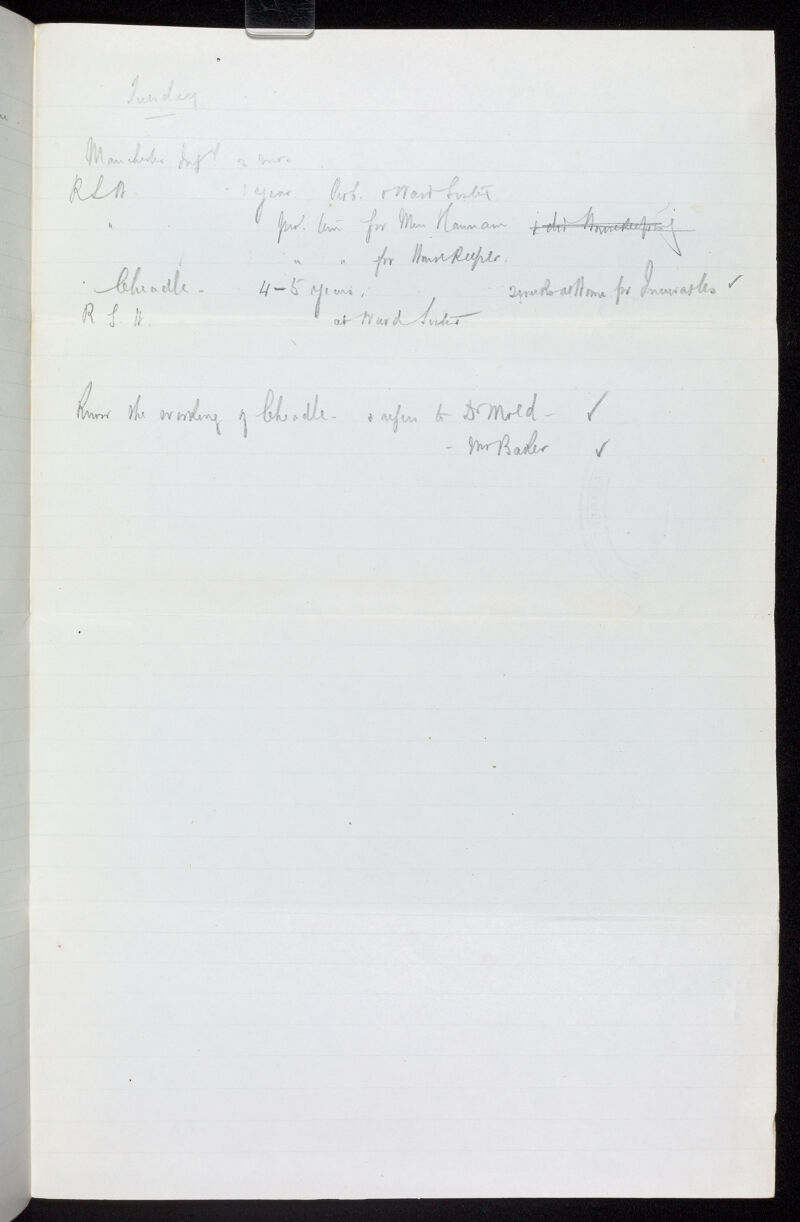 Tuesday
Manchester Infy 2 mos
R S H. 1 year. Prob. & Ward Sister
" for Miss Hannam & did Housekeeping
" " for Housekeeper.
Cheadle - 4-5 years. 2 weeks at Home for Incurables ✓
R S H. as Ward Sister
Know the working of Cheadle - & refers to Dr Mould - ✓
- Mr Baker ✓